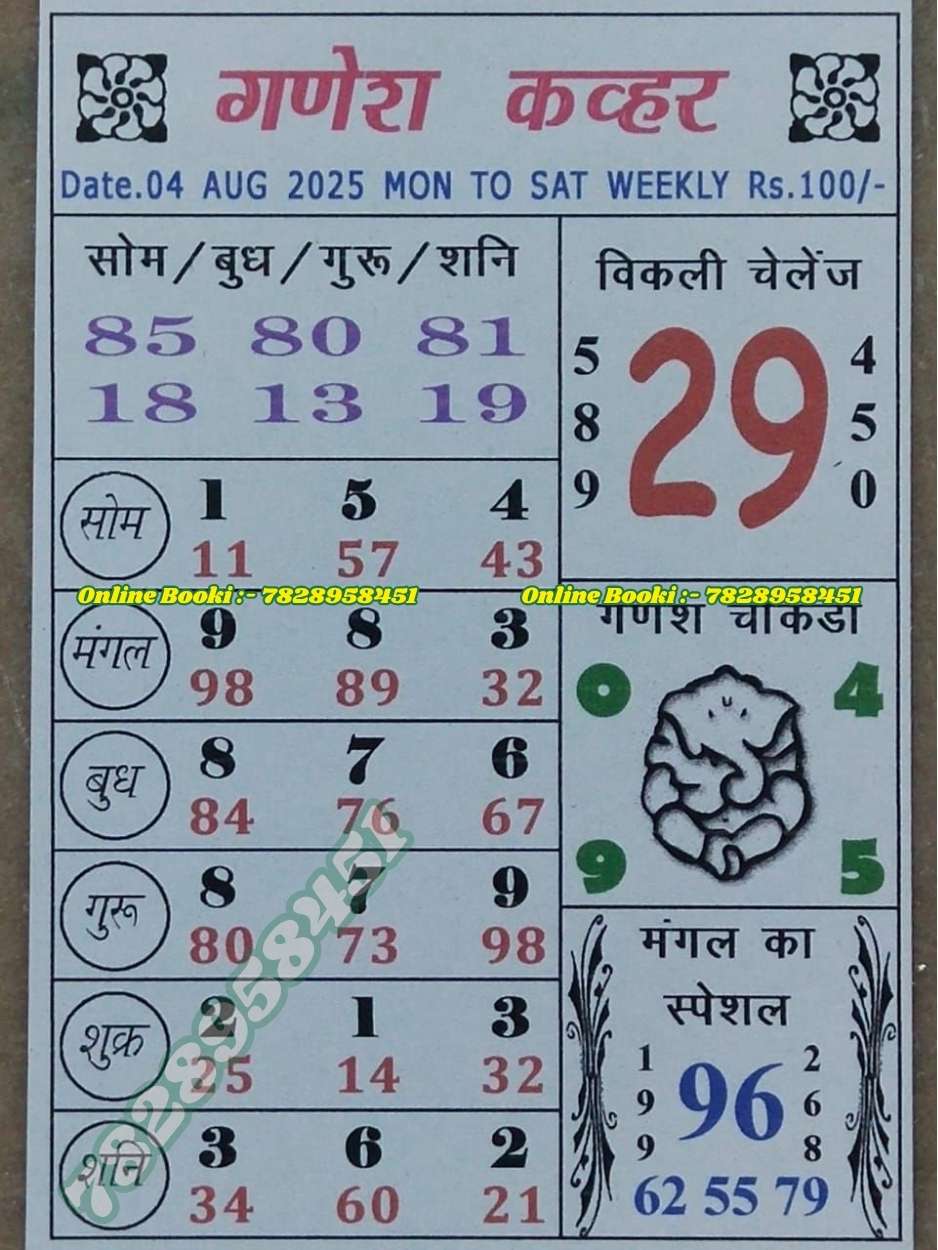 गणेश कव्हर
Date.04 AUG 2025 MON TO SAT WEEKLY Rs.100/-
सोम/बुध/गुरू/शनि
85 80 81
18 13 19
विकली चेलेंज
5 29 4
8 5
9 0
सोम 1 5 4
11 57 43
Online Booki :- 7828958451 Online Booki :- 7828958451
मंगल 9 8 3
98 89 32
बुध 8 7 6
84 76 67
गुरू 8 7 9
80 73 98
शुक्र 2 1 3
25 14 32
शनि 3 6 2
34 60 21
7828958451
गणेश चौकडा
0 4
9 5
मंगल का
स्पेशल
1 96 2
9 6
9 8
62 55 79